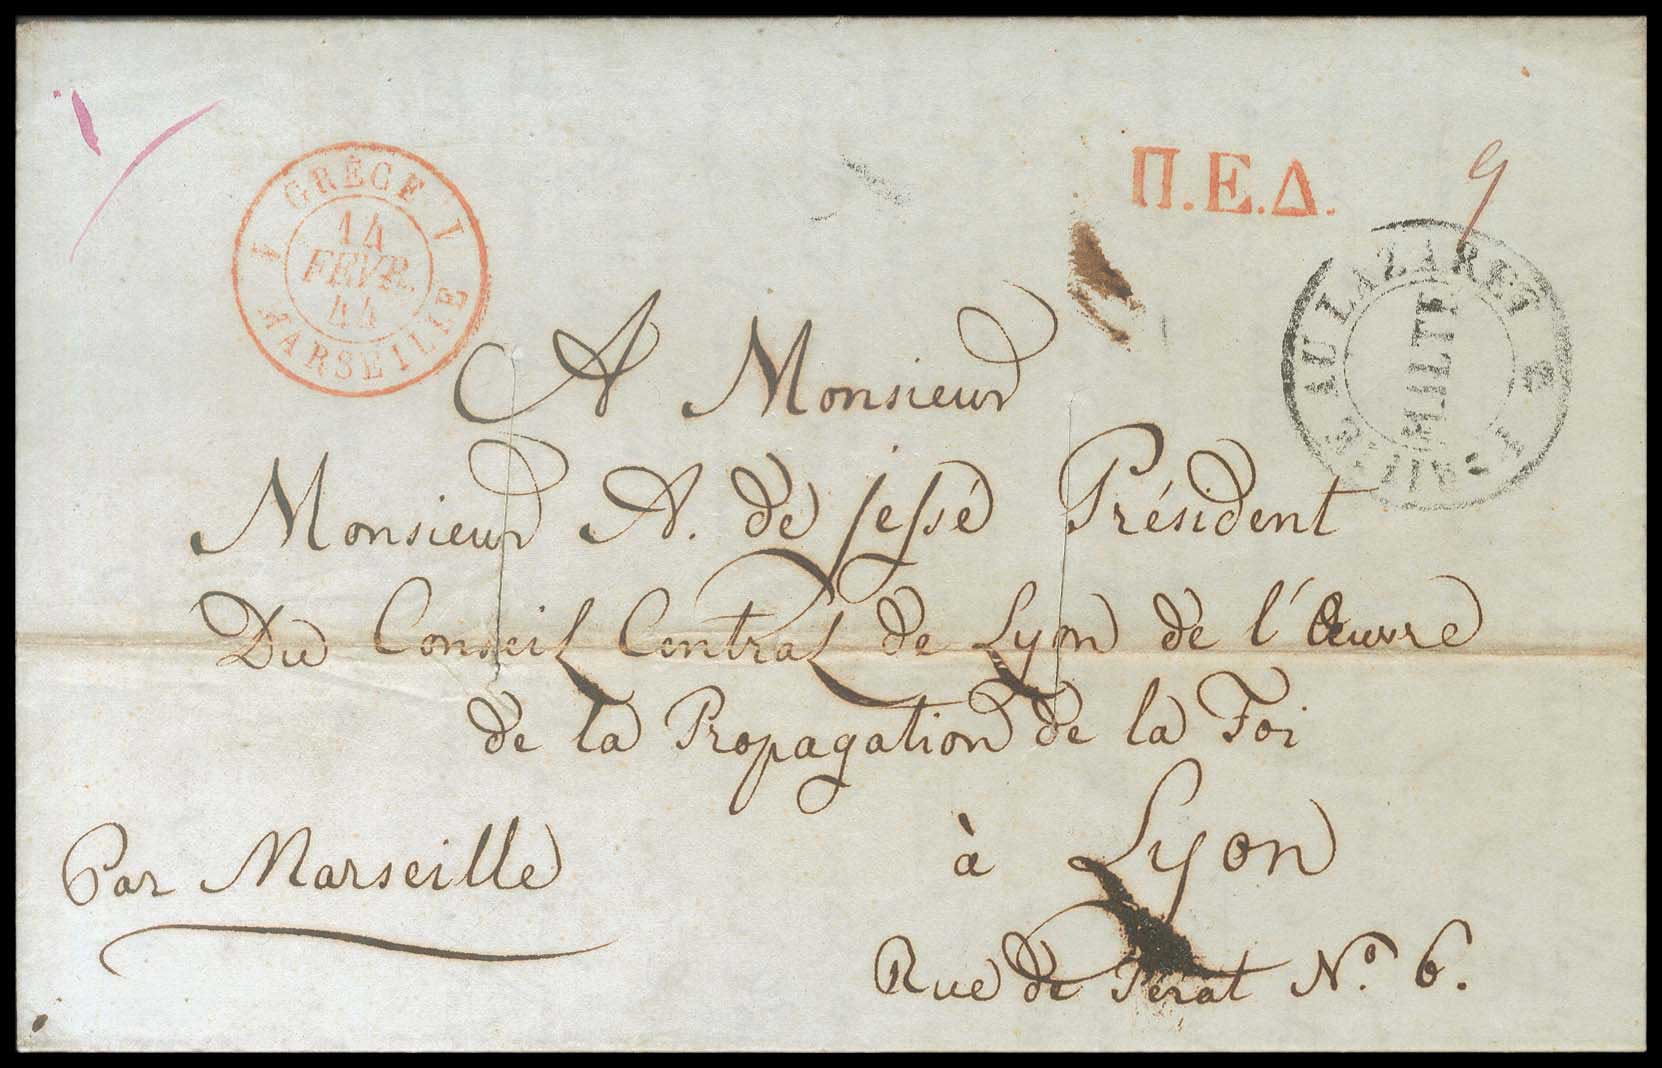 1 GRÈCE 1
14
FEVR.
44
MARSEILLE
Π.Ε.Δ.
9
AU LAZARET
MALTE
A Monsieur
Monsieur A. de Jessé Président
Du Conseil Central de Lyon de l'Œuvre
de la Propagation de la Foi
à Lyon
Par Marseille
Rue de Pérat Nº. 6.